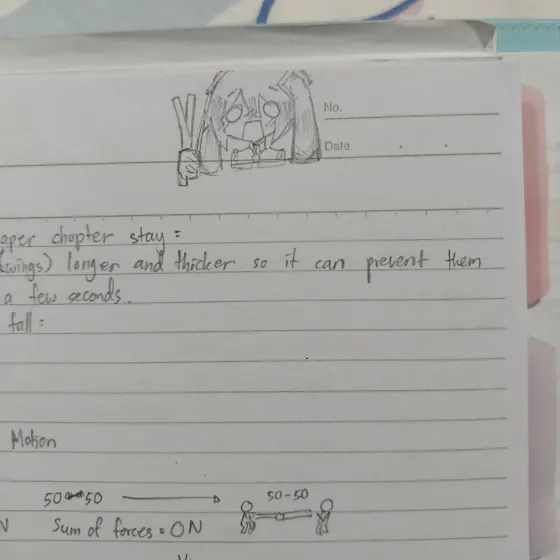 No.
Date
aper chopter stay =
(wings) longer and thicker so it can prevent them
a few seconds.
fall =
Motion
50 50 50-50
N Sum of forces = 0 N